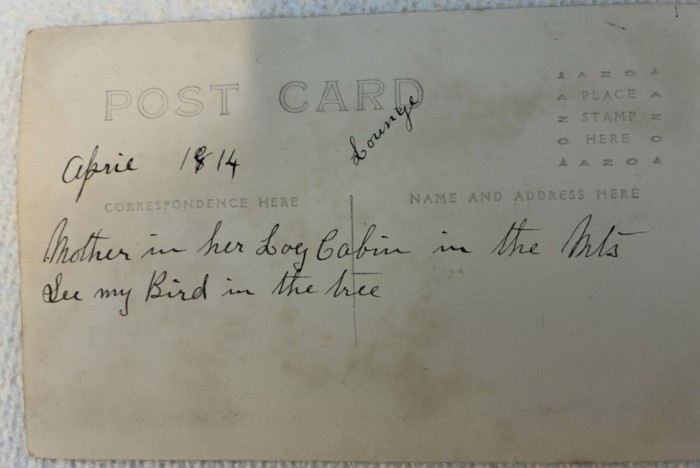 POST CARD
Lounge
A A Z O A
A PLACE A
Z STAMP Z
O HERE O
A A Z O A
April 1914
CORRESPONDENCE HERE
NAME AND ADDRESS HERE
Mother in her Log Cabin in the Mts
See my Bird in the tree